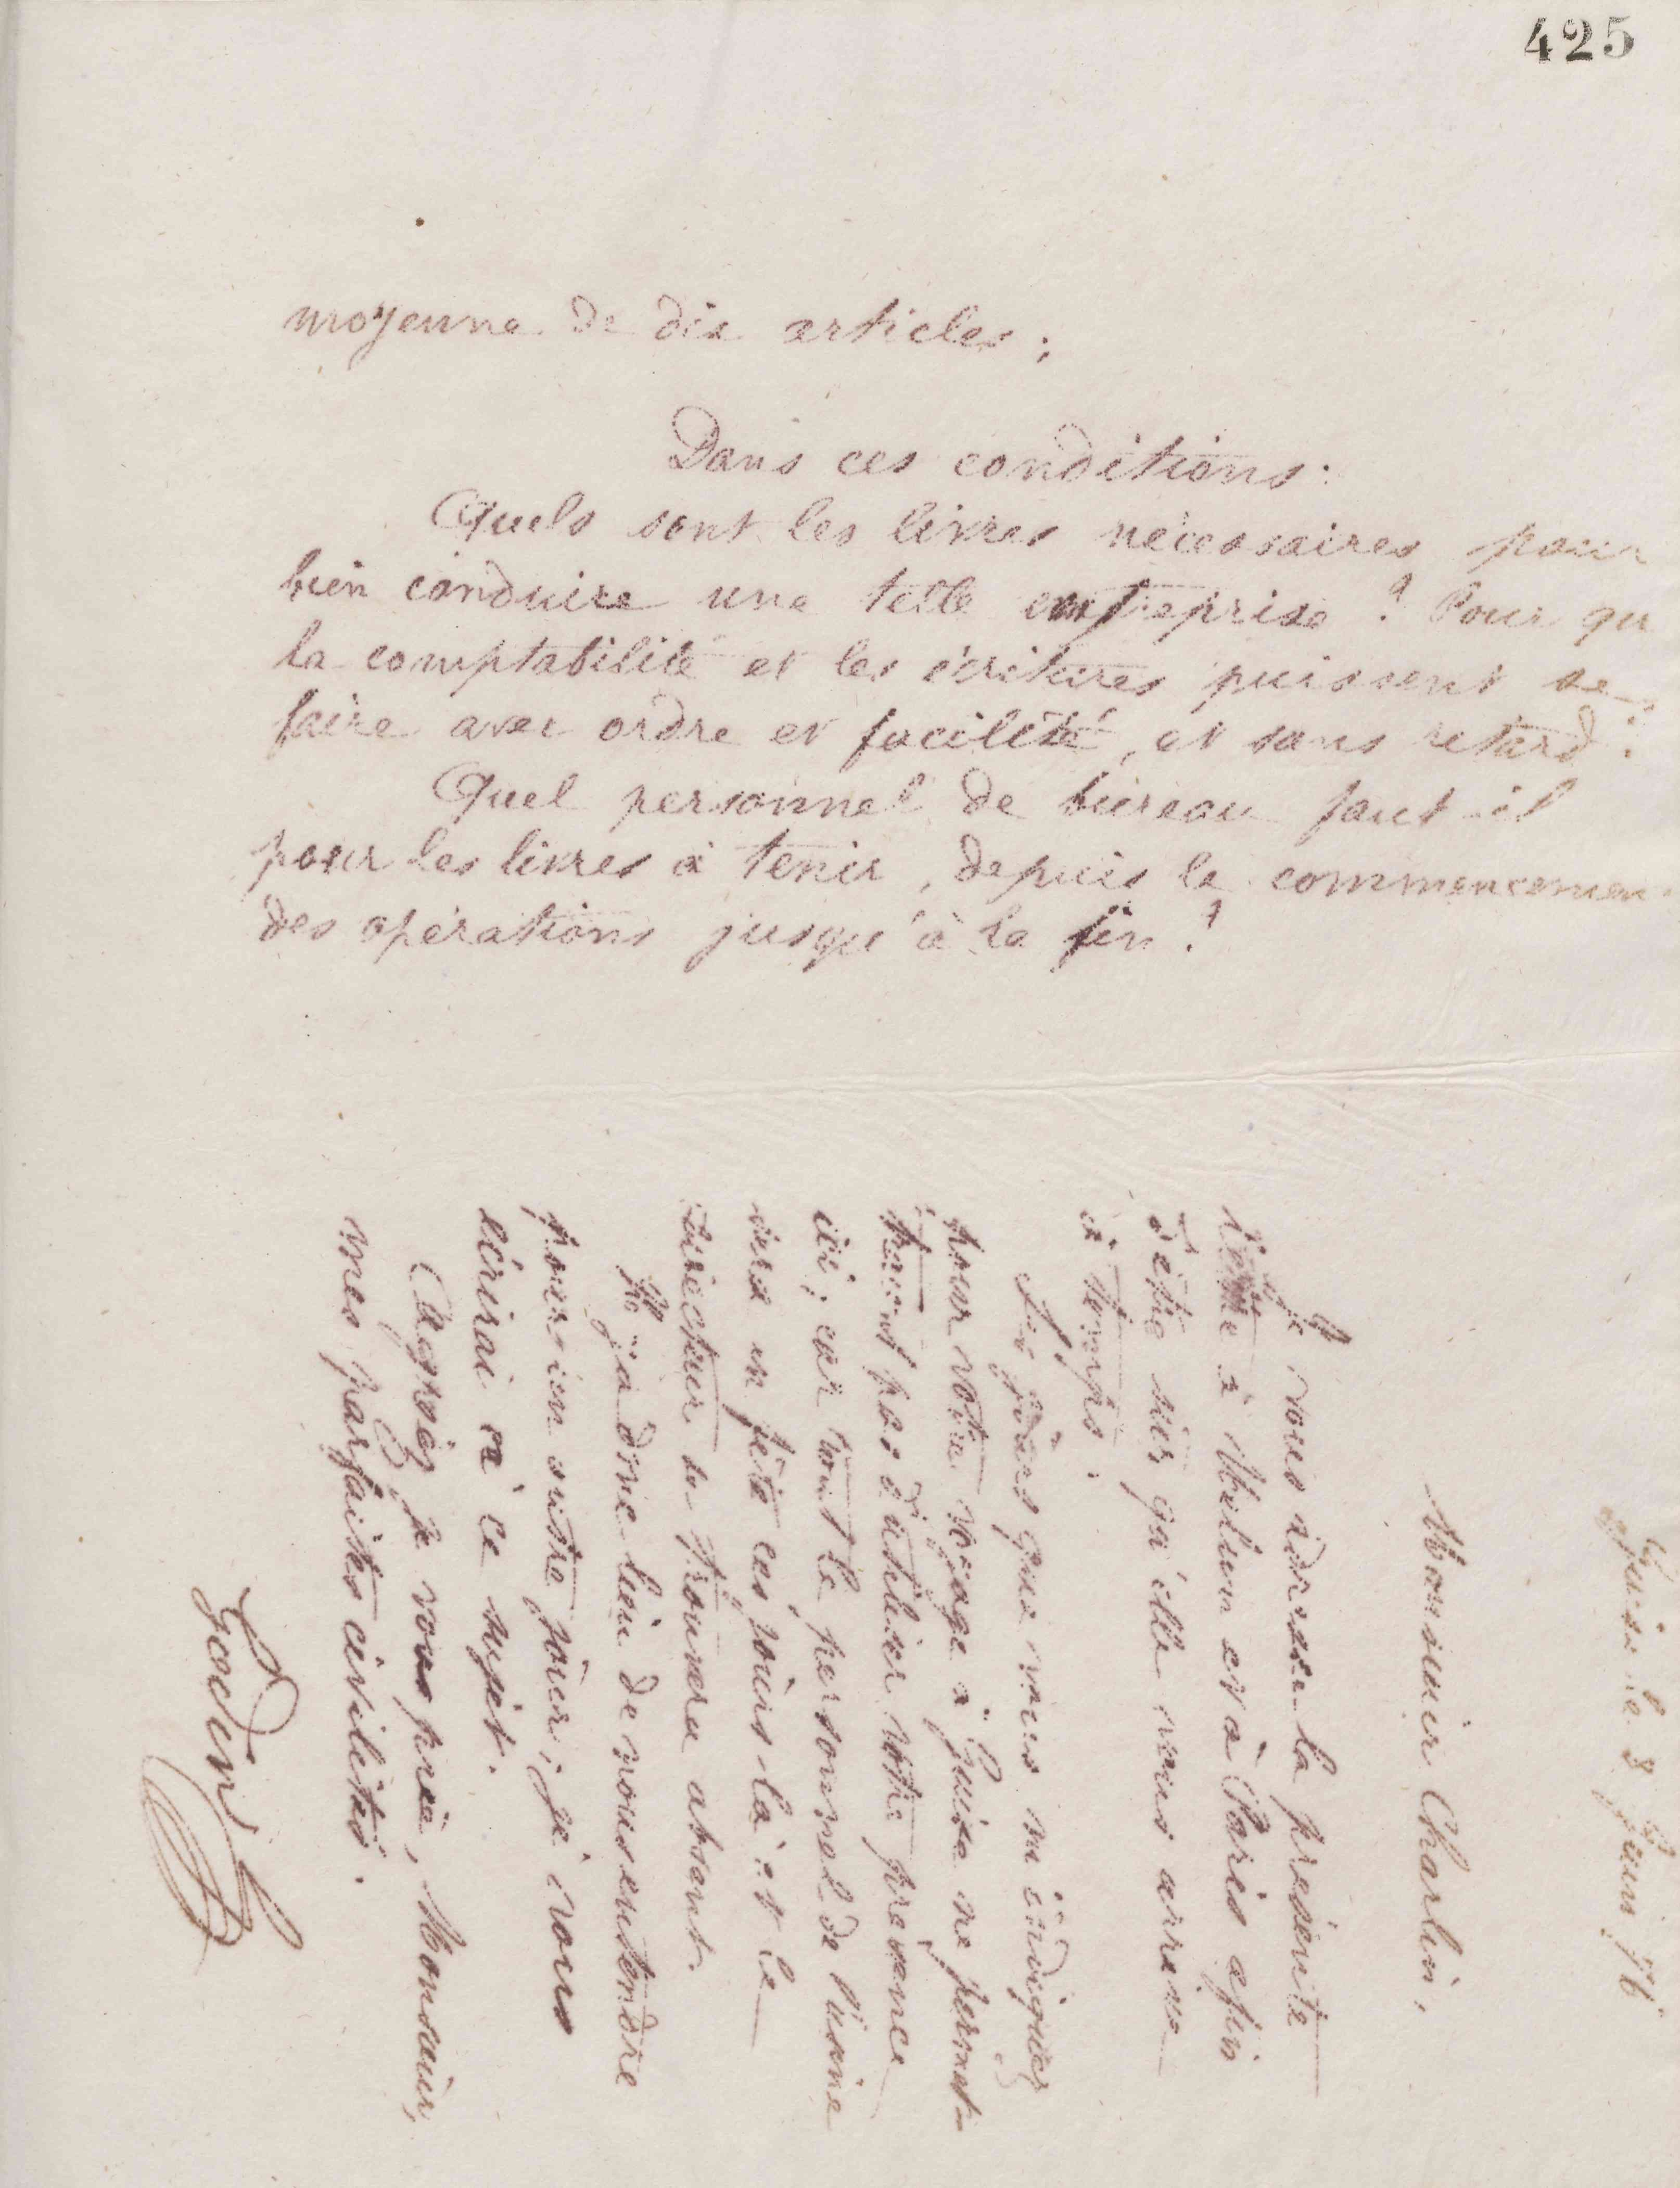 425
moyenne de dix articles ;
Dans ces conditions :
Quels sont les livres nécessaires pour
bien conduire une telle entreprise ? Pour qu
la comptabilité et les écritures puissent se
faire avec ordre et facilité, et sans retard ?
Quel personnel de bureau faut-il
pour les livres à tenir, depuis le commencemen
des opérations jusqu'à la fin ?
Guise le 3 Juin 76
Monsieur Charlin,
Je vous adresse la présente
lettre à Melun et à Paris afin
d'être sûr qu'elle vous arrive
à temps.
Les jours que vous m'indiquez
pour votre voyage à Guise ne permet-
traient pas d'utiliser votre présence
ici ; car tout le personnel de l'usine
sera en fête ces jours-là et le
directeur se trouvera absent.
Il y a donc lieu de nous entendre
pour un autre jour ; je vous
écrirai à ce sujet.
Agréez, je vous prie, Monsieur,
mes parfaites civilités.
Godin